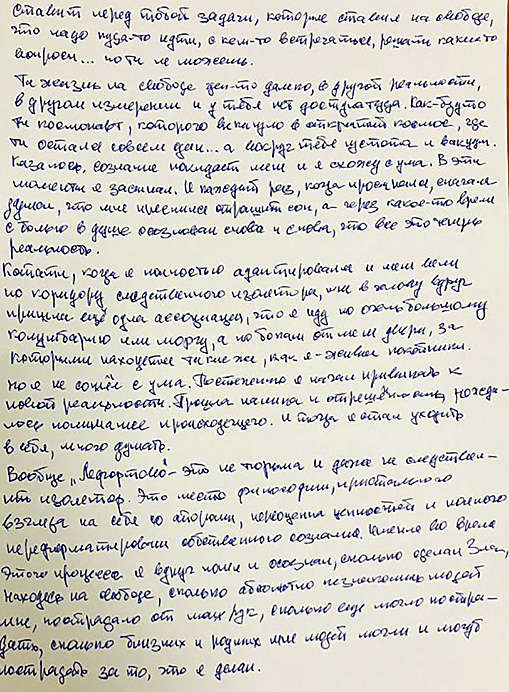 ставит перед тобой задачи, которые ставил на свободе,
что надо куда-то идти, с кем-то встречаться, решать какие-то
вопросы... но ты не можешь.
Та жизнь на свободе где-то далеко, в другой реальности,
в другом измерении и у тебя нет доступа туда. Как-будто
ты космонавт, которого выкинуло в открытый космос, где
ты остался совсем один... а вокруг тебя пустота и вакуум.
Казалось, сознание покидает меня и я схожу с ума. В эти
моменты я засыпал. И каждый раз, когда просыпался, сначала
думал, что мне приснился страшный сон, а через какое-то время
с болью в душе осознавал снова и снова, что все это теперь
реальность.
Кстати, когда я полностью адаптировался и меня вели
по коридору следственного изолятора, мне в голову вдруг
пришла ещё одна ассоциация, что я иду по очень большому
колумбарию или моргу, а по бокам от меня двери, за
которыми находятся такие же, как я - живые покойники.
Но я не сошёл с ума. Постепенно я начал привыкать к
новой реальности. Прошла паника и отрешённость, появи-
лось понимание происходящего. И тогда я стал уходить
в себя, много думать.
Вообще „Лефортово" - это не тюрьма и даже не следствен-
ный изолятор. Это место философии, пристального
взгляда на себя со стороны, переоценки ценностей и полного
переформатирования собственного сознания. Именно во время
этого процесса я вдруг понял и осознал, сколько сделал Зла,
находясь на свободе, сколько абсолютно незнакомых людей
мне, пострадало от моих рук, сколько еще могло постра-
дать, сколько близких и родных мне людей могли и могут
пострадать за то, что я делал.